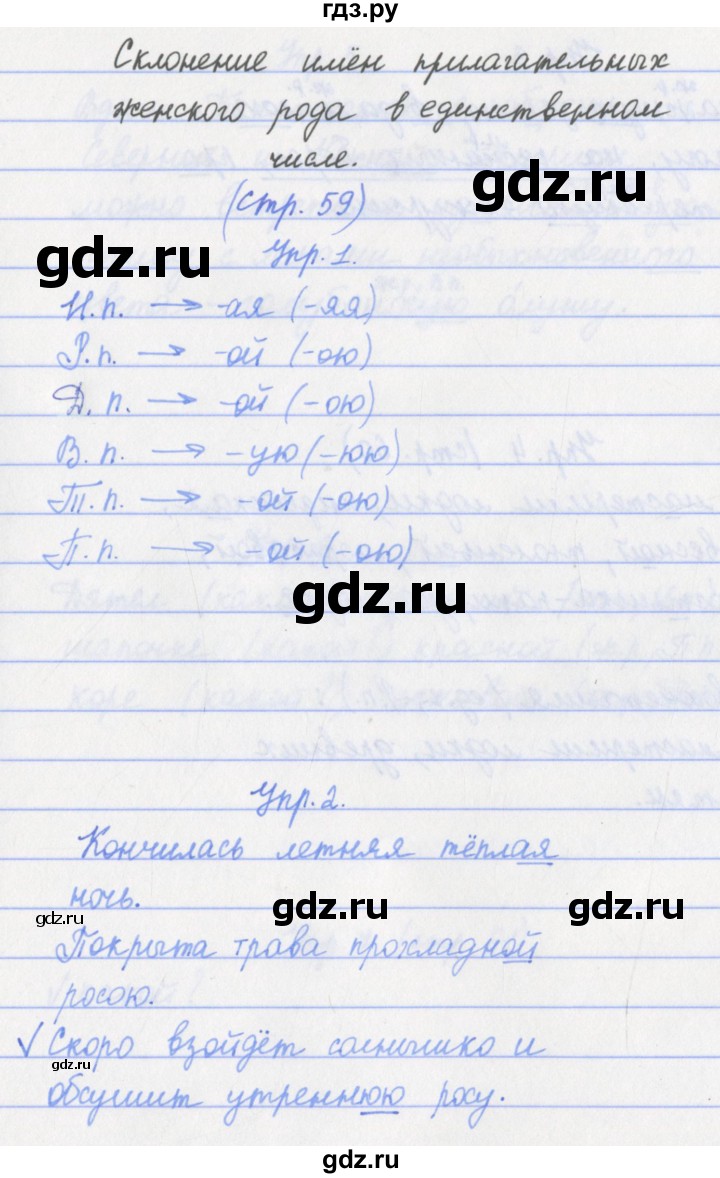 гдз.ру
Склонение имён прилагательных
женского рода в единственном
числе.
gdz.ru
(стр. 59)
gdz.ru
Упр. 1.
И.п. → -ая (-яя)
Р.п. → -ой (-ою)
Д.п. → -ой (-ою)
В.п. → -ую (-юю)
Т.п. → -ой (-ою)
П.п. → -ой (-ою)
gdz.ru
Упр. 2.
Кончилась летняя тёплая
ночь.
gdz.ru gdz.ru gdz.ru
Покрыта трава прохладной
росою.
√ Скоро взойдёт солнышко и
gdz.ru
обсушит утреннюю росу.
gdz.ru